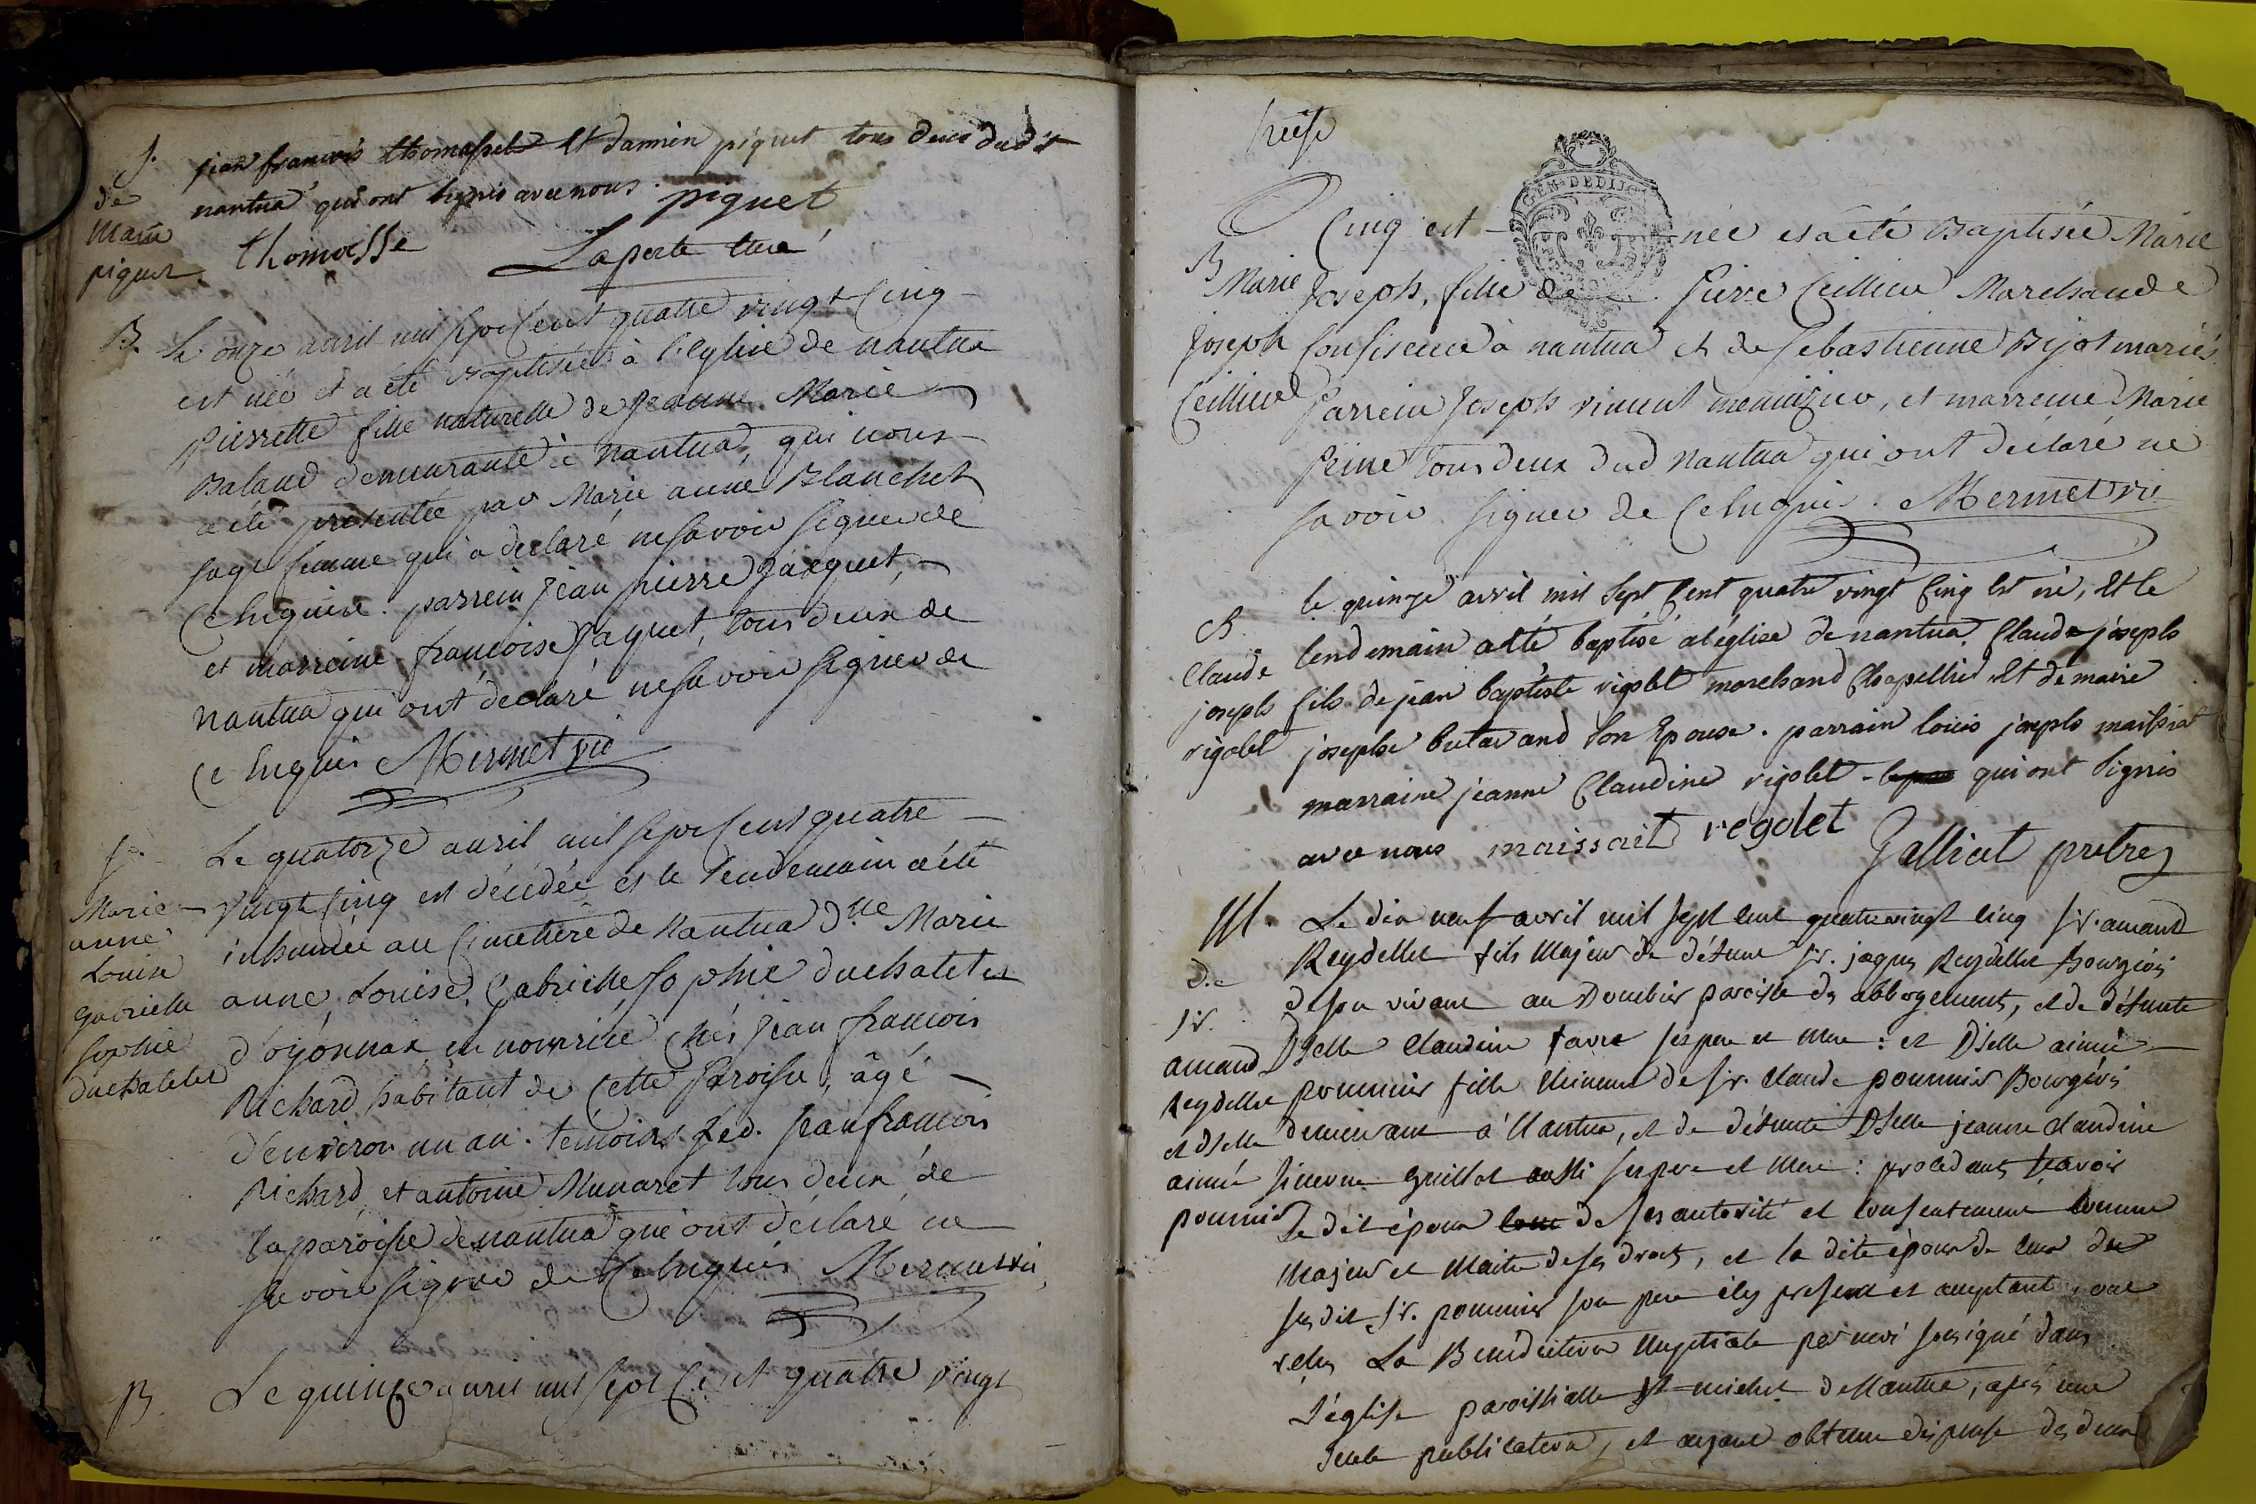 S.
de
Marie
piquet
jean françois thomasset Et damien piquet tous deux dudit
nantua qui ont signés avec nous. piquet
thomasse Laperle curé
B. Le onze avril mil sept cent quatre vingt cinq
est née et a été Baptisée à l'église de nantua
Pierrette fille naturelle de Jeanne Marie
Baland demeurante à nantua, qui nous
a été présentée par Marie anne Blanchet
sage femme qui a declaré ne savoir signer de
ce enquise. parrein Jean pierre Jacquet,
et marreine françoise Jaquet, tous deux de
nantua qui ont déclaré ne savoir signer de
ce enquis Mermet vic
S.
Marie
anne
Louise
gabrielle
sophie
duchatelet
Le quatorze avril mil sept cent quatre
vingt cinq est décédée et le lendemain a été
inhumée au cimetière de Nantua Dlle Marie
anne, Louise, Gabrielle sophie duchatelet
d'oyonnax en nourrice chés Jean francois
Richard habitant de cette paroisse, âgé
d'environ un an. témoins led. Jean francois
Richard, et antoine Munaret tous deux de
la paroisse de nantua qui ont déclaré ne
savoir signer de ce enquis Mermet vic
B. Le quinze avril mil sept cent quatre vingt
treise
GEN. DE DIJON
cinq est née et a été Baptisée Marie
B
Marie
Joseph
Ceillier
Joseph, fille de Pierre Ceillier Marchand
confiseur à nantua et de Sebastienne Bijot mariés
Parrein Joseph vincent menuizier, et marreine Marie
peine tous deux dud nantua qui ont déclaré ne
savoir signer de ce enquis. Mermet vic
B.
Claude
joseph
rigolet
le quinze avril mil sept cent quatre vingt cinq Est né, Et le
lendemain a été baptisé a l'église de nantua Claude joseph
fils de jean baptiste rigolet marchand Chapellier Et de marie
josephe butavand son Epouse. parrain louis joseph maissiat
marraine jeanne Claudine rigolet qui ont signés
avec nous maissait regolet Jalliet pretre
M.
De
sr.
amand
Reydellet
et Dselle
aimée
pommier
Le dix neuf avril mil sept cent quatre vingt cinq sr. amand
Reydellet fils Majeur de défunt sr. jaques Reydellet Bourgeois
de son vivant au Dombier paroisse des abbergements, et de défunte
Dselle Claudine favre ses pere et mere: et Dselle aimée
pommier fille Mineure de sr. Claude pommier Bourgeois
demeurant à Nantua, et de défunte Dselle jeanne Claudine
Simonne Guillot aussi ses pere et mere: procedants sçavoir
Le dit époux de ses autorité et consentement comme
Majeur et Maitre de ses droits, et la dite épouse de ceux du
susdit sr. pommier son pere icy present et acceptant, ont
reçus La Bénédiction Nuptiale par nous soussigné dans
L'église paroissialle St michel de Nantua, après une
seule publication, et ayant obtenu dispense des deux